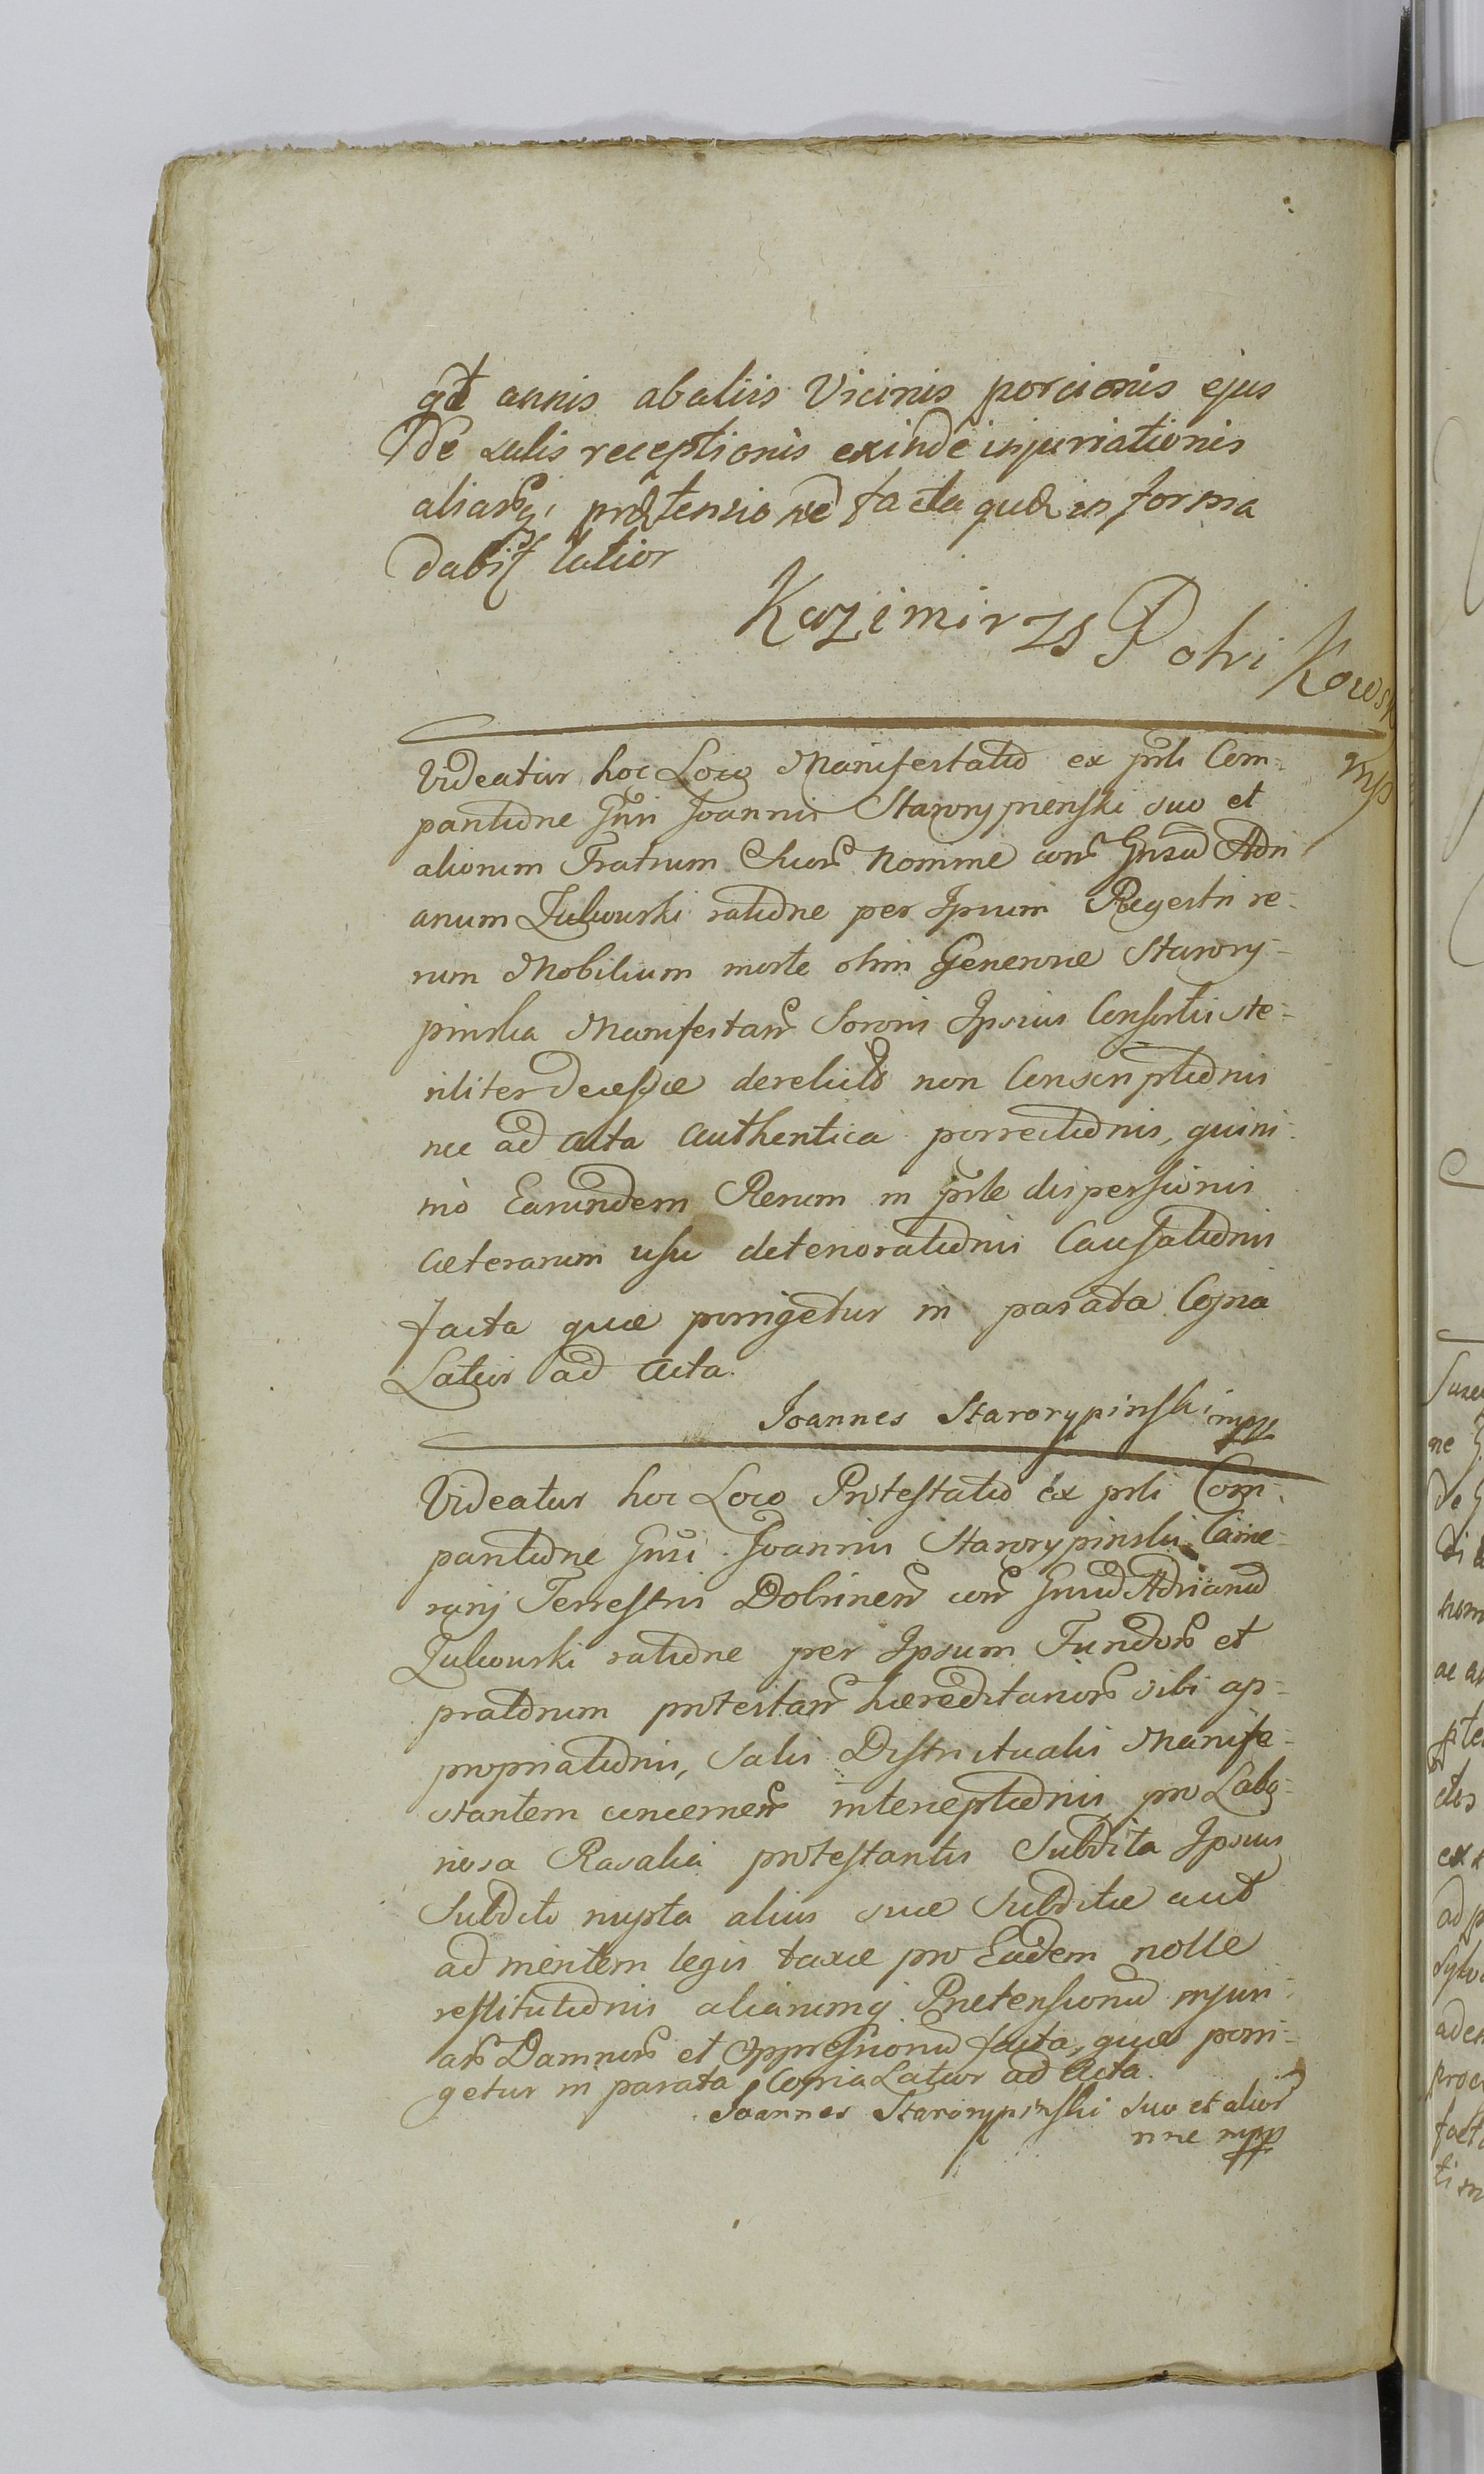 annis ab aliis Vicinis porcionis ejus
de salis receptionis exinde injuriationis
aliarq, prætensio ne facta quæ in forma
latior
Kazimirz Potri Kowsk
mp
Videatur hoc Loco Manifestatio ex prli Com-
paritione Gnsi Joannis Starorypienski suo et
aliorum Fratrum Suor Nomine con Gnsum Adri
anum Zulewski ratione per Ipsum Regestri re-
rum Mobilium morte olim Generosæ Starory-
pinska Manifestan Sororis Ipsius Consortis ste-
riliter decessæ derelict non Conscriptionis
nec ad acta authentica porrectionis, quini-
mò Earundem Rerum in prte dispersionis
cæterarum usu deteriorationis Causationis
facta quæ porrigetur in parata Copia
Latior ad acta.
Joannes Starorypinski mpp
Videatur hoc Loco Protestatio ex prli Com-
paritione Gnsi Joannis Starorypinski Came-
rarij Terrestris Dobrinen con Gnsum Adrianum
Zulewski ratione per Ipsum Fundor et
pratorum protestan hæreditarior sibi ap-
propriationis, Salis Districtualis Manife-
stantem concernen interceptionis, pro Labo-
riosa Rosalia protestantis Subdita Ipsius
Subdito nupta alius suæ Subditæ aut
ad mentem legis taxæ pro Eadem nolle
restitutionis aliarumq Prætensionum injuri-
ar Damnor et Oppressionum facta, quæ porri-
getur in parata Copia Latior ad Acta.
Joannes Starorypinski suo et alior
nne mpp